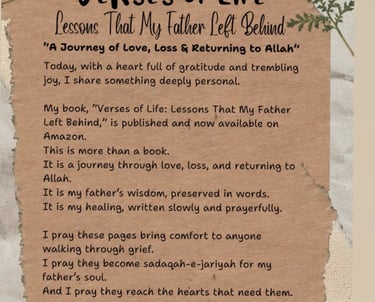 VERSES OF LIFE
Lessons That My Father Left Behind
"A Journey of Love, Loss & Returning to Allah"
Today, with a heart full of gratitude and trembling
joy, I share something deeply personal.
My book, "Verses of Life: Lessons That My Father
Left Behind," is published and now available on
Amazon.
This is more than a book.
It is a journey through love, loss, and returning to
Allah.
It is my father's wisdom, preserved in words.
It is my healing, written slowly and prayerfully.
I pray these pages bring comfort to anyone
walking through grief.
I pray they become sadaqah-e-jariyah for my
father's soul.
And I pray they reach the hearts that need them.